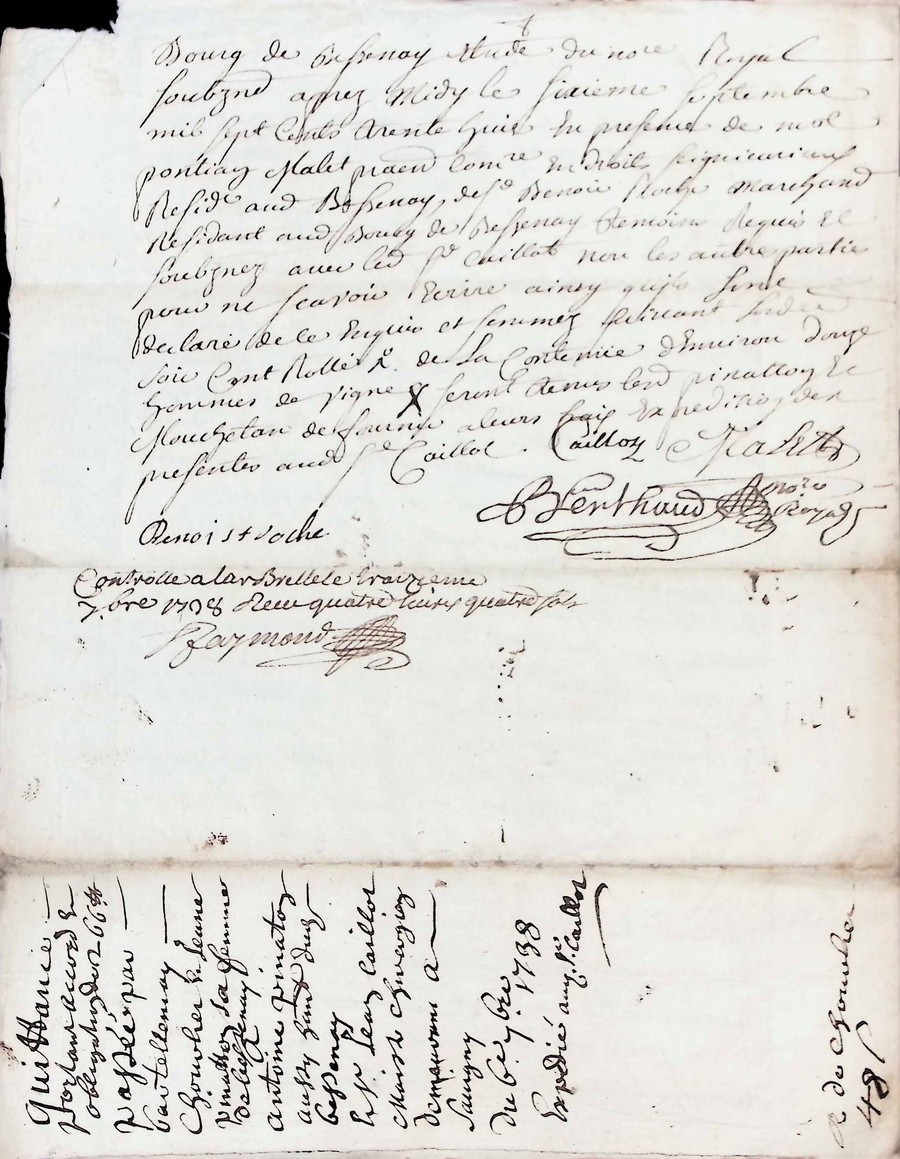 Bourg de Bessenay Etude du nore Royal
soubzné aprez Midy le sixieme septembre
mil sept Cents trente huit En presence de
pontian Malet en droits seigneuriaux
Resid. aud Bessenay, de sr Benoit Roche Marchand
Residant aud Bourg de Bessenay temoins Requis Et
soubznez avec led sr Caillot non les autres parties
pour ne scavoir Ecrire ainsy quils sont
declaré de le Enquis et sommez suivant
soit Cont Rollé de La Contenue d'Environ douze
hommes de vigne X seront tenus lesd pinatton Et
Mouchetan de fournir a leurs frais Expedition des
presentes aud sr Caillot. Caillot Malet
Berthaud nore Royal
Benoist Roche
Controlle a larBrelle le traizieme
7.bre 1738 Receu quatre livres quatre sols
Raymond
Quittance
portant accord Et
obligation de 266 ₶
passée par
bartellemy
Chouther Et Jeanne
pinatton sa femme
de bessenay
Antoine pinatton
aussy dud
bessenay
Et sr Jean Caillot
Maistre Chirurgien
demeurant A
Savigny
Du 6e 7.bre 1738
Expedié au sr Caillot
R de Chouther
48